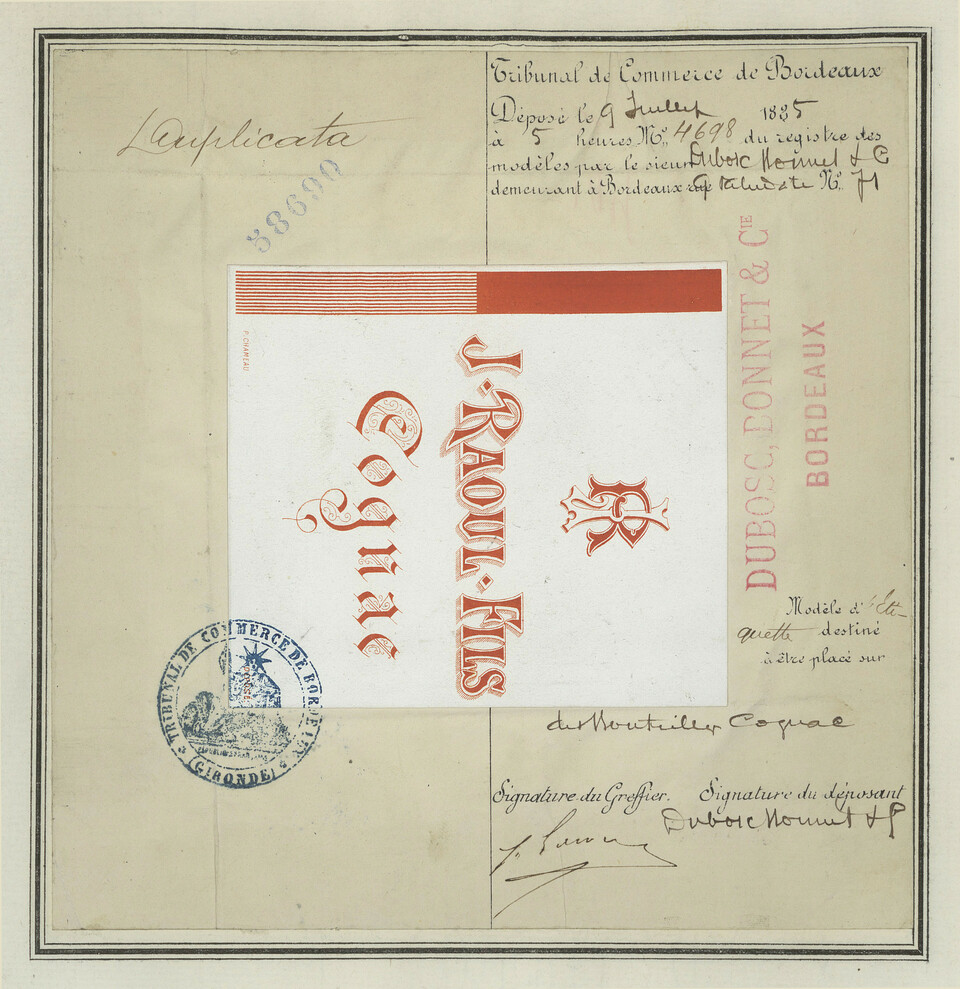 Tribunal de Commerce de Bordeaux
Déposé le 9 Juillet 1885
à 5 heures M. Nº 4698 du registre des
modèles par le sieur Dubosc Donnet & C
demeurant à Bordeaux rue Nº 71
Duplicata
38690
P. CHAMEAU
J. RAOUL. FILS
Cognac
JR
DUBOSC, DONNET & CIE
BORDEAUX
Modèle d'Eti-
quette destiné
à être placé sur
des Bouteilles Cognac
TRIBUNAL DE COMMERCE DE BORDEAUX
(GIRONDE)
Signature du Greffier. Signature du déposant
Dubosc Donnet & C